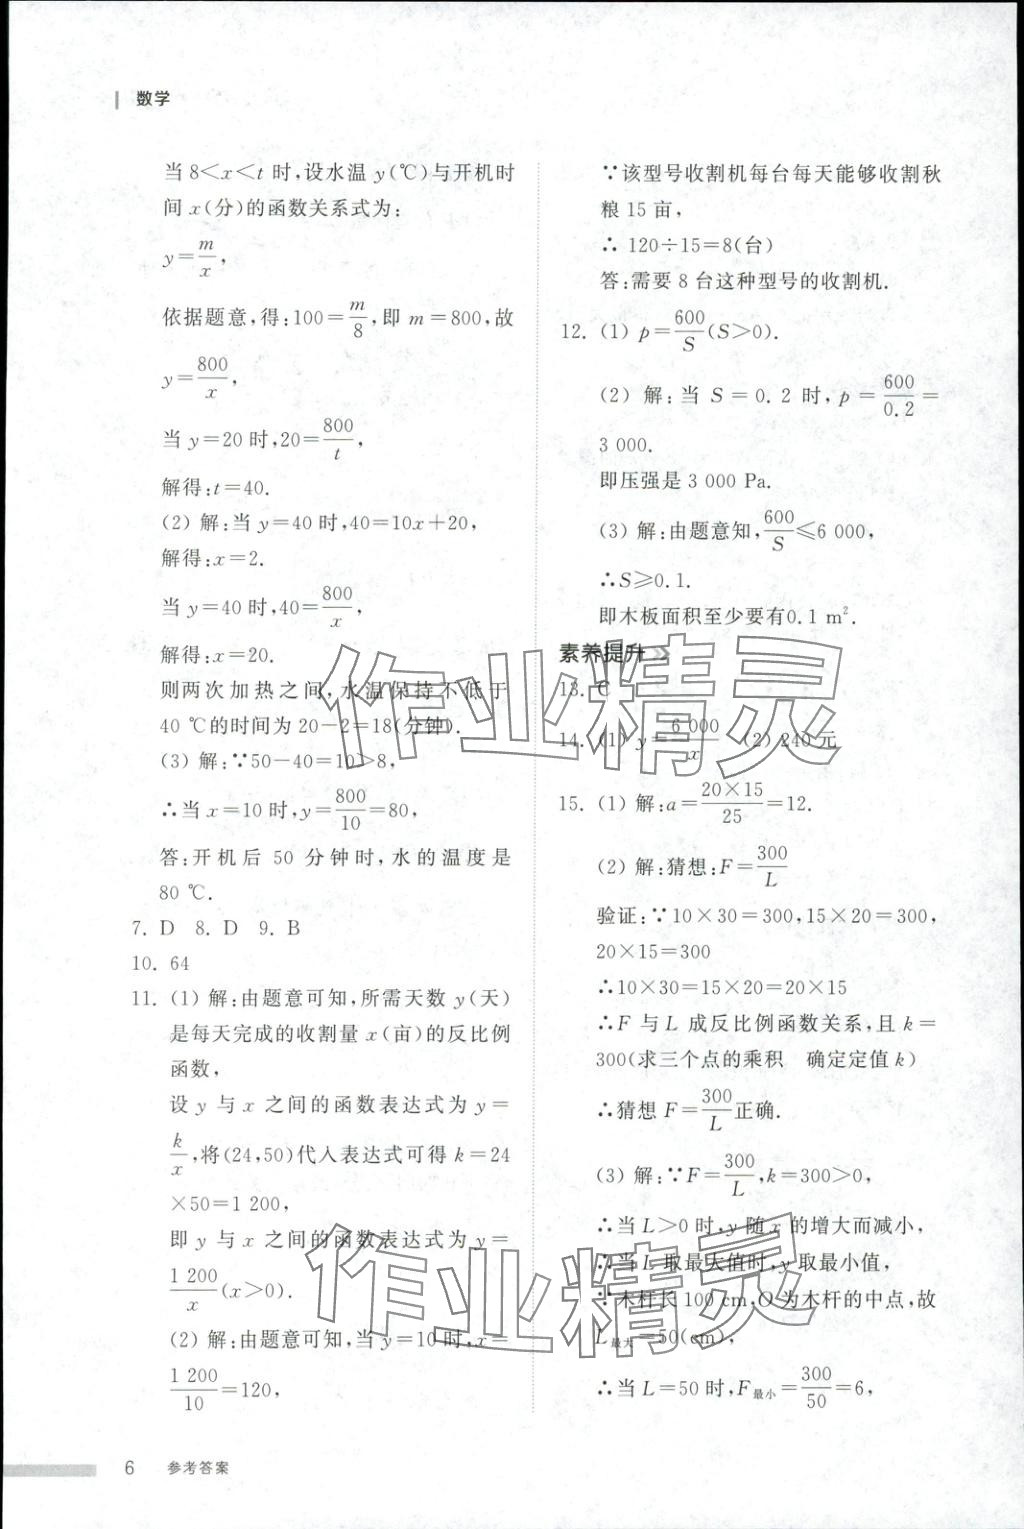 数学
当 8<x<t 时,设水温 y(℃)与开机时
间 x(分)的函数关系式为:
y=m/x,
依据题意,得:100=m/8,即 m=800,故
y=800/x,
当 y=20 时,20=800/t,
解得:t=40.
(2) 解:当 y=40 时,40=10x+20,
解得:x=2.
当 y=40 时,40=800/x,
解得:x=20.
则两次加热之间,水温保持不低于
40 ℃的时间为 20-2=18(分钟).
(3) 解:∵50-40=10>8,
∴当 x=10 时,y=800/10=80,
答:开机后 50 分钟时,水的温度是
80 ℃.
7. D 8. D 9. B
10. 64
11. (1) 解:由题意可知,所需天数 y(天)
是每天完成的收割量 x(亩)的反比例
函数,
设 y 与 x 之间的函数表达式为 y=
k/x,将(24,50)代入表达式可得 k=24
×50=1 200,
即 y 与 x 之间的函数表达式为 y=
1 200/x(x>0).
(2) 解:由题意可知,当 y=10 时,x=
1 200/10=120,
∵该型号收割机每台每天能够收割秋
粮 15 亩,
∴ 120÷15=8(台)
答:需要 8 台这种型号的收割机.
12. (1) p=600/S(S>0).
(2) 解:当 S=0.2 时,p=600/0.2=
3 000.
即压强是 3 000 Pa.
(3) 解:由题意知,600/S≤6 000,
∴S≥0.1.
即木板面积至少要有0.1 m².
素养提升
13. C
14. (1) y=6 000/x (2) 240 元
15. (1) 解:a=20×15/25=12.
(2) 解:猜想:F=300/L
验证:∵10×30=300,15×20=300,
20×15=300
∴10×30=15×20=20×15
∴F 与 L 成反比例函数关系,且 k=
300(求三个点的乘积 确定定值 k)
∴猜想 F=300/L正确.
(3) 解:∵F=300/L,k=300>0,
∴当 L>0 时,y 随 x 的增大而减小,
∴当 L 取最大值时,y 取最小值,
∵木杆长 100 cm,O 为木杆的中点,故
L最大=50(cm),
∴当 L=50 时,F最小=300/50=6,
6 参考答案
作业精灵
作业精灵